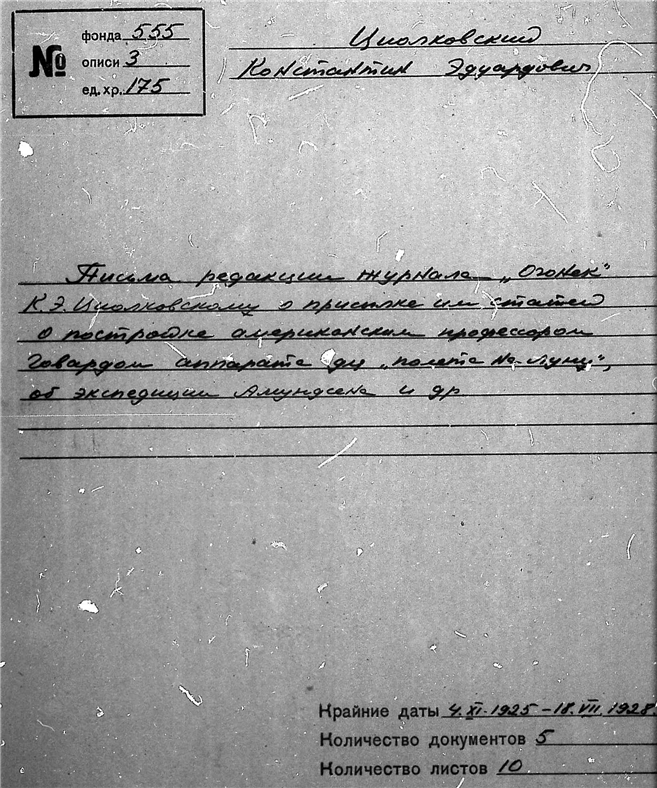 №
фонда 555
описи 3
ед. хр. 175
Циолковский
Константин Эдуардович
Письма редакции журнала „Огонек"
К.Э. Циолковскому о присылке им статей
о постройке американским профессором
Говардом аппарата для „полета на Луну",
об экспедиции Амундсена и др
Крайние даты 4.XI.1925 – 18.VII.1928.
Количество документов 5
Количество листов 10